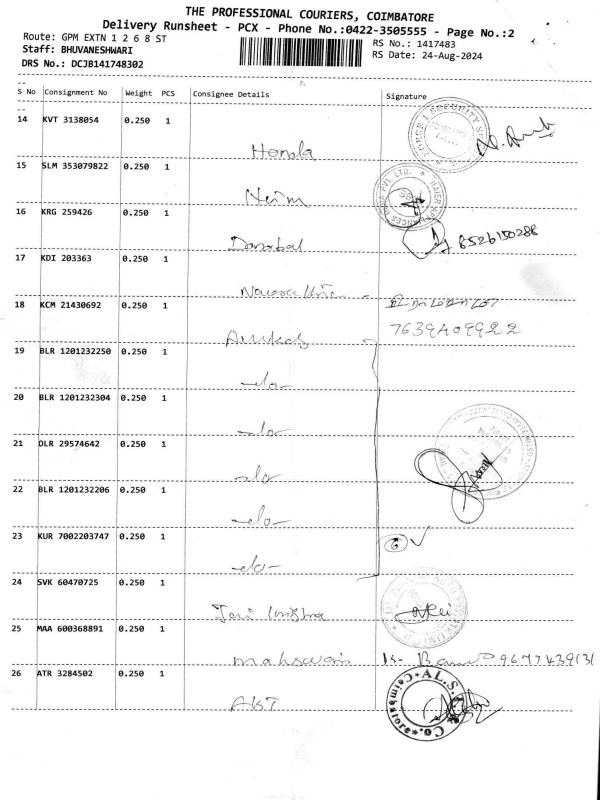 THE PROFESSIONAL COURIERS, COIMBATORE
Delivery Runsheet - PCX - Phone No.:0422-3505555 - Page No.:2
Route: GPM EXTN 1 2 6 8 ST
Staff: BHUVANESHWARI
DRS No.: DCJB141748302
RS No.: 1417483
RS Date: 24-Aug-2024
S No Consignment No Weight PCS Consignee Details Signature
14 KVT 3138054 0.250 1
Honda
15 SLM 353079822 0.250 1
16 KRG 259426 0.250 1
8526150288
17 KDI 203363 0.250 1
18 KCM 21430692 0.250 1
7639409922
19 BLR 1201232250 0.250 1
-do-
20 BLR 1201232304 0.250 1
-do-
21 DLR 29574642 0.250 1
-do-
22 BLR 1201232206 0.250 1
-do-
23 KUR 7002203747 0.250 1
6
-do-
24 SVK 60470725 0.250 1
25 MAA 600368891 0.250 1
26 ATR 3284502 0.250 1
AKT
A.L.S. & Co. Coimbatore